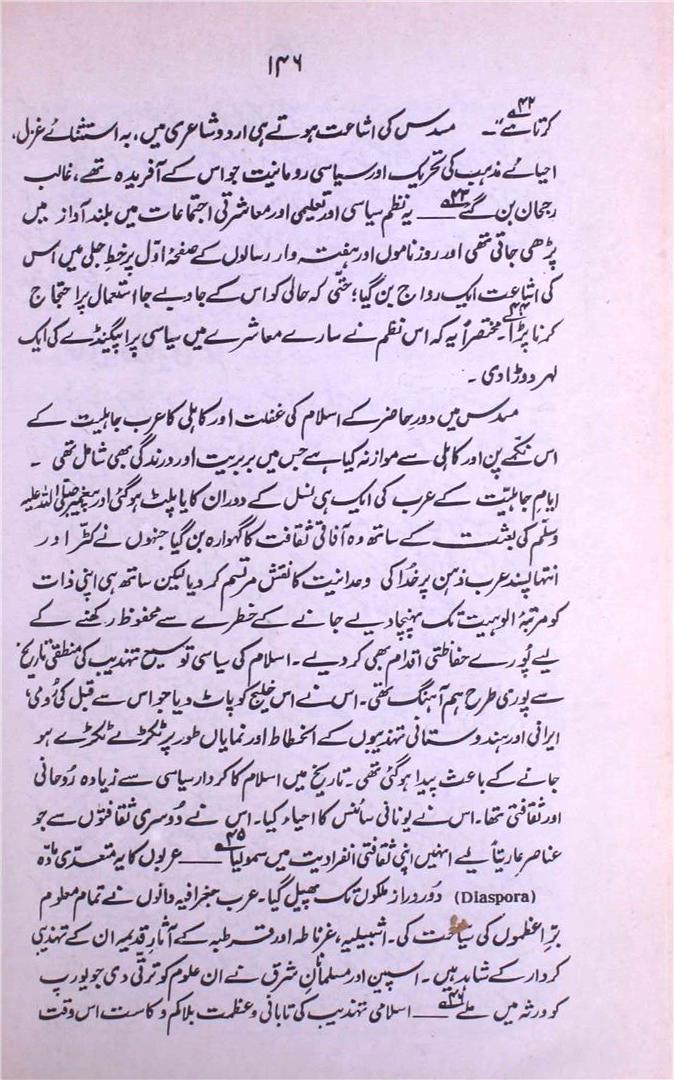 ۱۴۶
کرتا ہے"۔۴۲ مسدس کی اشاعت ہوتے ہی اردو شاعری میں، بہ استثنائے غزل،
احیائے مذہب کی تحریک اور سیاسی رومانیت جو اس کے آفریدہ تھے، غالب
رجحان بن گئے۴۳ ـــ یہ نظم سیاسی اور تعلیمی اور معاشرتی اجتماعات میں بلند آواز میں
پڑھی جاتی تھی اور روزناموں اور ہفتہ وار رسالوں کے صفحۂ اوّل پر خطِ جلی میں اس
کی اشاعت ایک رواج بن گیا؛ حتّیٰ کہ حالی کو اس کے جا و بے جا استعمال پر احتجاج
کرنا پڑا۔۴۴ مختصراً یہ کہ اس نظم نے سارے معاشرے میں سیاسی پراپیگنڈے کی ایک
لہر دوڑا دی ۔
مسدس میں دورِ حاضر کے اسلام کی غفلت اور کاہلی کا عرب جاہلیت کے
اس نکمّے پن اور کاہلی سے موازنہ کیا ہے جس میں بربریت اور درندگی بھی شامل تھی ۔
ایامِ جاہلیّت کے عرب کی ایک ہی نسل کے دوران کایا پلٹ ہو گئی اور پیغمبر صلّی اللہ علیہ
وسلّم کی بعثت کے ساتھ وہ آفاتی ثقافت کا گہوارہ بن گیا جنہوں نے کٹّر اور
انتہا پسند عرب ذہن پر خدُا کی وحدانیت کا نقش مرتسم کر دیا لیکن ساتھ ہی اپنی ذات
کو مرتبۂ الوہیت تک پہنچا دیے جانے کے خطرے سے محفوظ رکھنے کے
لیے پُورے حفاظتی اقدام بھی کر دیے ۔ اسلام کی سیاسی توسیع تہذیب کی منطقی تاریخ
سے پوری طرح ہم آہنگ تھی۔ اس نے اس خلیج کو پاٹ دیا جو اس سے قبل کی رُومی،
ایرانی اور ہندوستانی تہذیبوں کے انحطاط اور نمایاں طور پر ٹکڑے ٹکڑے ہو
جانے کے باعث پیدا ہو گئی تھی ۔ تاریخ میں اسلام کا کردار سیاسی سے زیادہ رُوحانی
اور ثقافتی تھا۔ اس نے یونانی سائنس کا احیاء کیا۔ اس نے دُوسری ثقافتوں سے جو
عناصر عاریتاً لیے انہیں اپنی ثقافتی انفرادیت میں سمو لیا۴۵ ـــ عربوں کا یہ متعدّی مادّہ
(Diaspora) دُور دراز ملکوں تک پھیل گیا۔ عرب جغرافیہ دانوں نے تمام معلوم
برِّ اعظموں کی سیاحت کی ۔ اشبیلیہ، غرناطہ اور قرطبہ کے آثارِ قدیمہ ان کے تہذیبی
کردار کے شاہد ہیں ۔ اسپین اور مسلمانانِ شرق نے ان علوم کو ترقی دی جو یورپ
کو ورثہ میں ملے۴۶ ـــ اسلامی تہذیب کی تابانی و عظمت بلا کم و کاست اس وقت